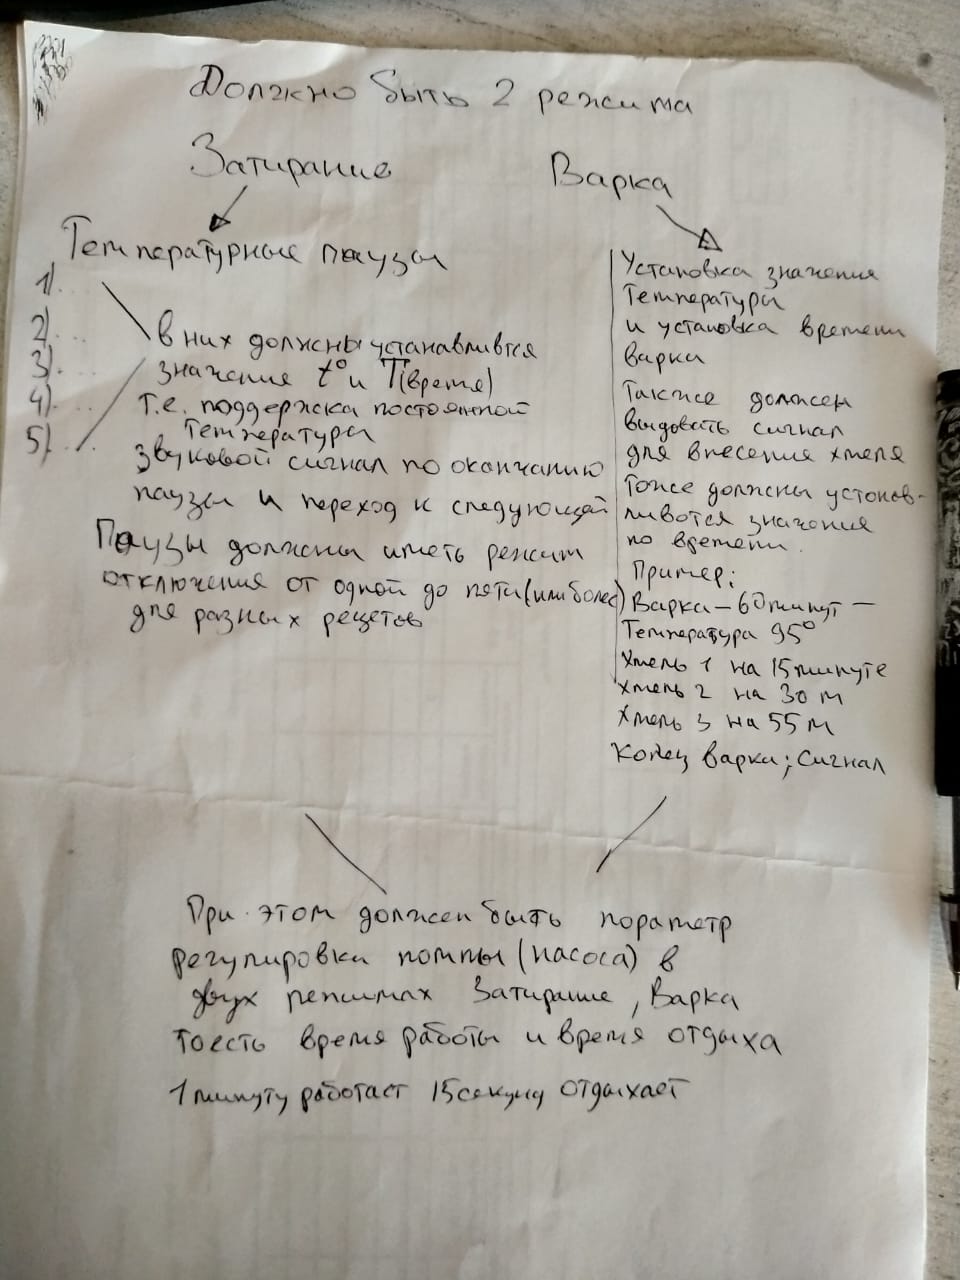 Должно быть 2 режима
Затирание
Варка
Температурные паузы
1)...
2)...
3)...
4)...
5)...
в них должны устанавливятся
значение t° и T(время)
т.е. поддержка постоянной
температуры
звуковой сигнал по окончанию
паузы и переход к следующей
Паузы должны иметь режим
отключения от одной до пяти(или более)
для разных рецетов
Установка значения
температуры
и установка времени
варки
Также должен
выдовать сигнал
для внесения хмеля
Тоже должны устонов-
ливотся значения
по времени.
Пример:
Варка – 60 минут –
Температура 95°
Хмель 1 на 15 минуте
Хмель 2 на 30 м
Хмель 3 на 55 м
Конец варки; Сигнал
При этом должен быть пораметр
регулировки помпы (насоса) в
двух режимах Затирание, Варка
тоесть время работы и время отдыха
1 минуту работает 15 секунд отдыхает